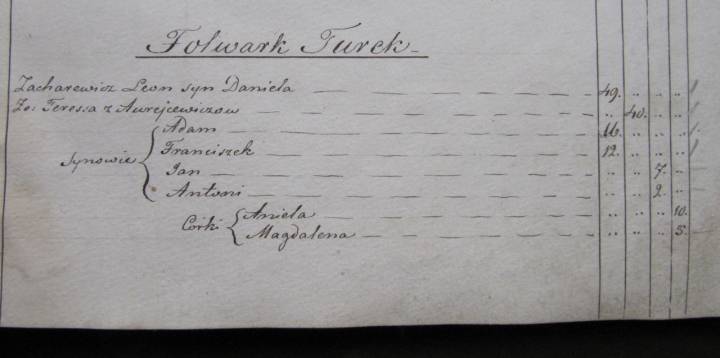 Folwark Turek
Zacharewicz Leon syn Daniela 49. .. .. ..
Żo: Teressa z Aurejcewiczow .. 40. .. ..
Adam 16. .. .. ..
Synowie Franciszek 12. .. .. ..
Jan .. .. 7. ..
Antoni .. .. 2. ..
Córki Aniela .. .. .. 10.
Magdalena .. .. .. 5.